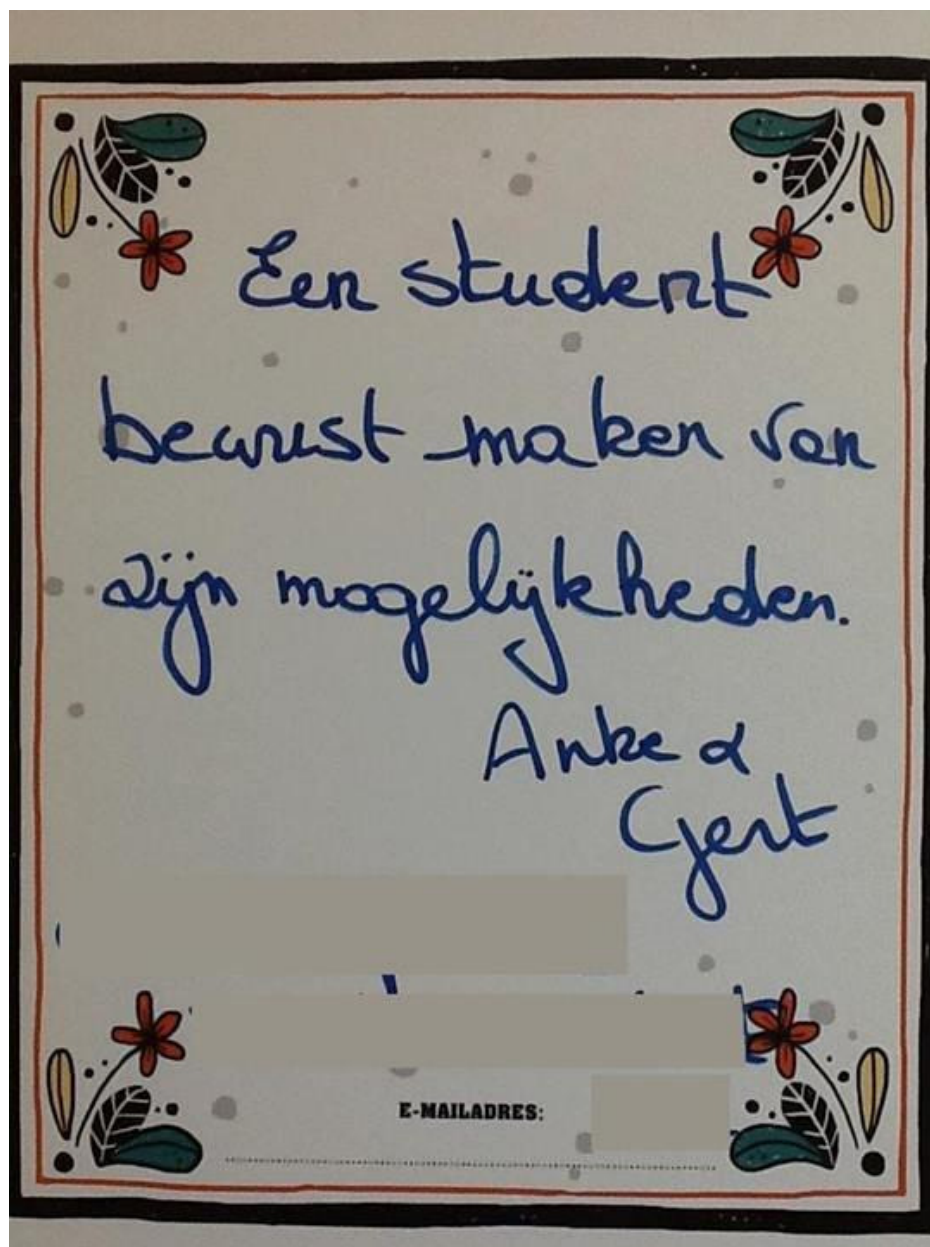 Een student
bewust maken van
zijn mogelijkheden.
Anke &
Gert
E-MAILADRES: